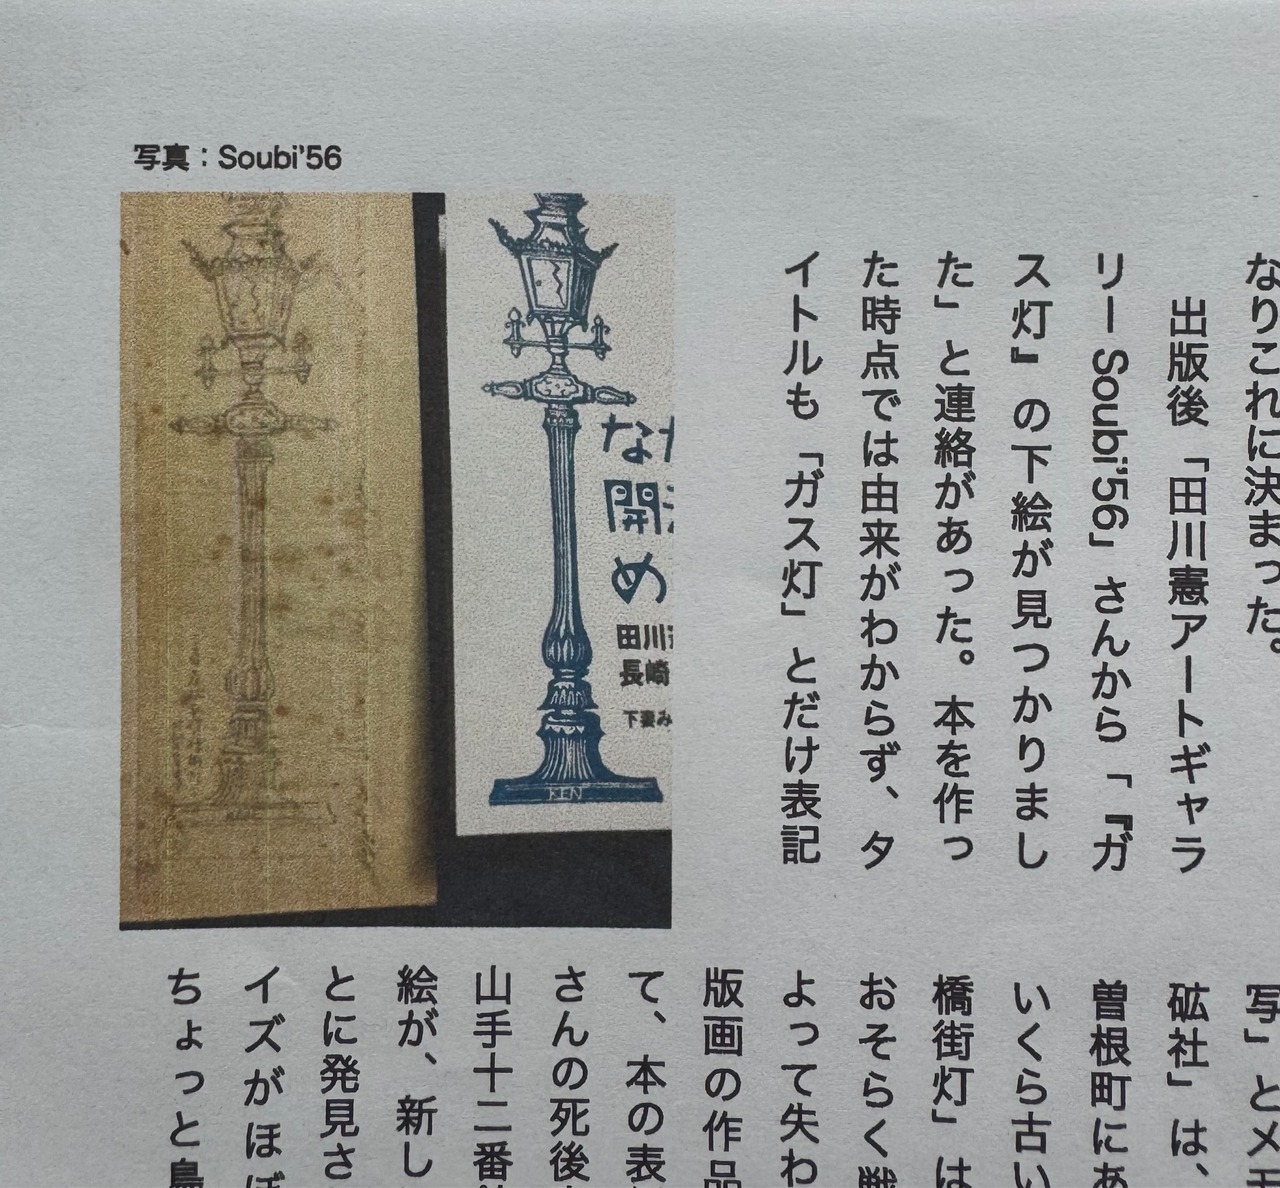 写真：Soubi'56
なりこれに決まった。
出版後「田川憲アートギャラ
リーSoubi'56」さんから「『ガ
ス灯』の下絵が見つかりまし
た」と連絡があった。本を作っ
た時点では由来がわからず、タ
イトルも「ガス灯」とだけ表記
な
開
め
田川
長崎
下妻み
KEN
写」とメモ
砿社」は、
曽根町にあ
いくら古い
橋街灯」は
おそらく戦
よって失わ
版画の作品
て、本の表
さんの死後
山手十二番
絵が、新し
とに発見さ
イズがほぼ
ちょっと鳥